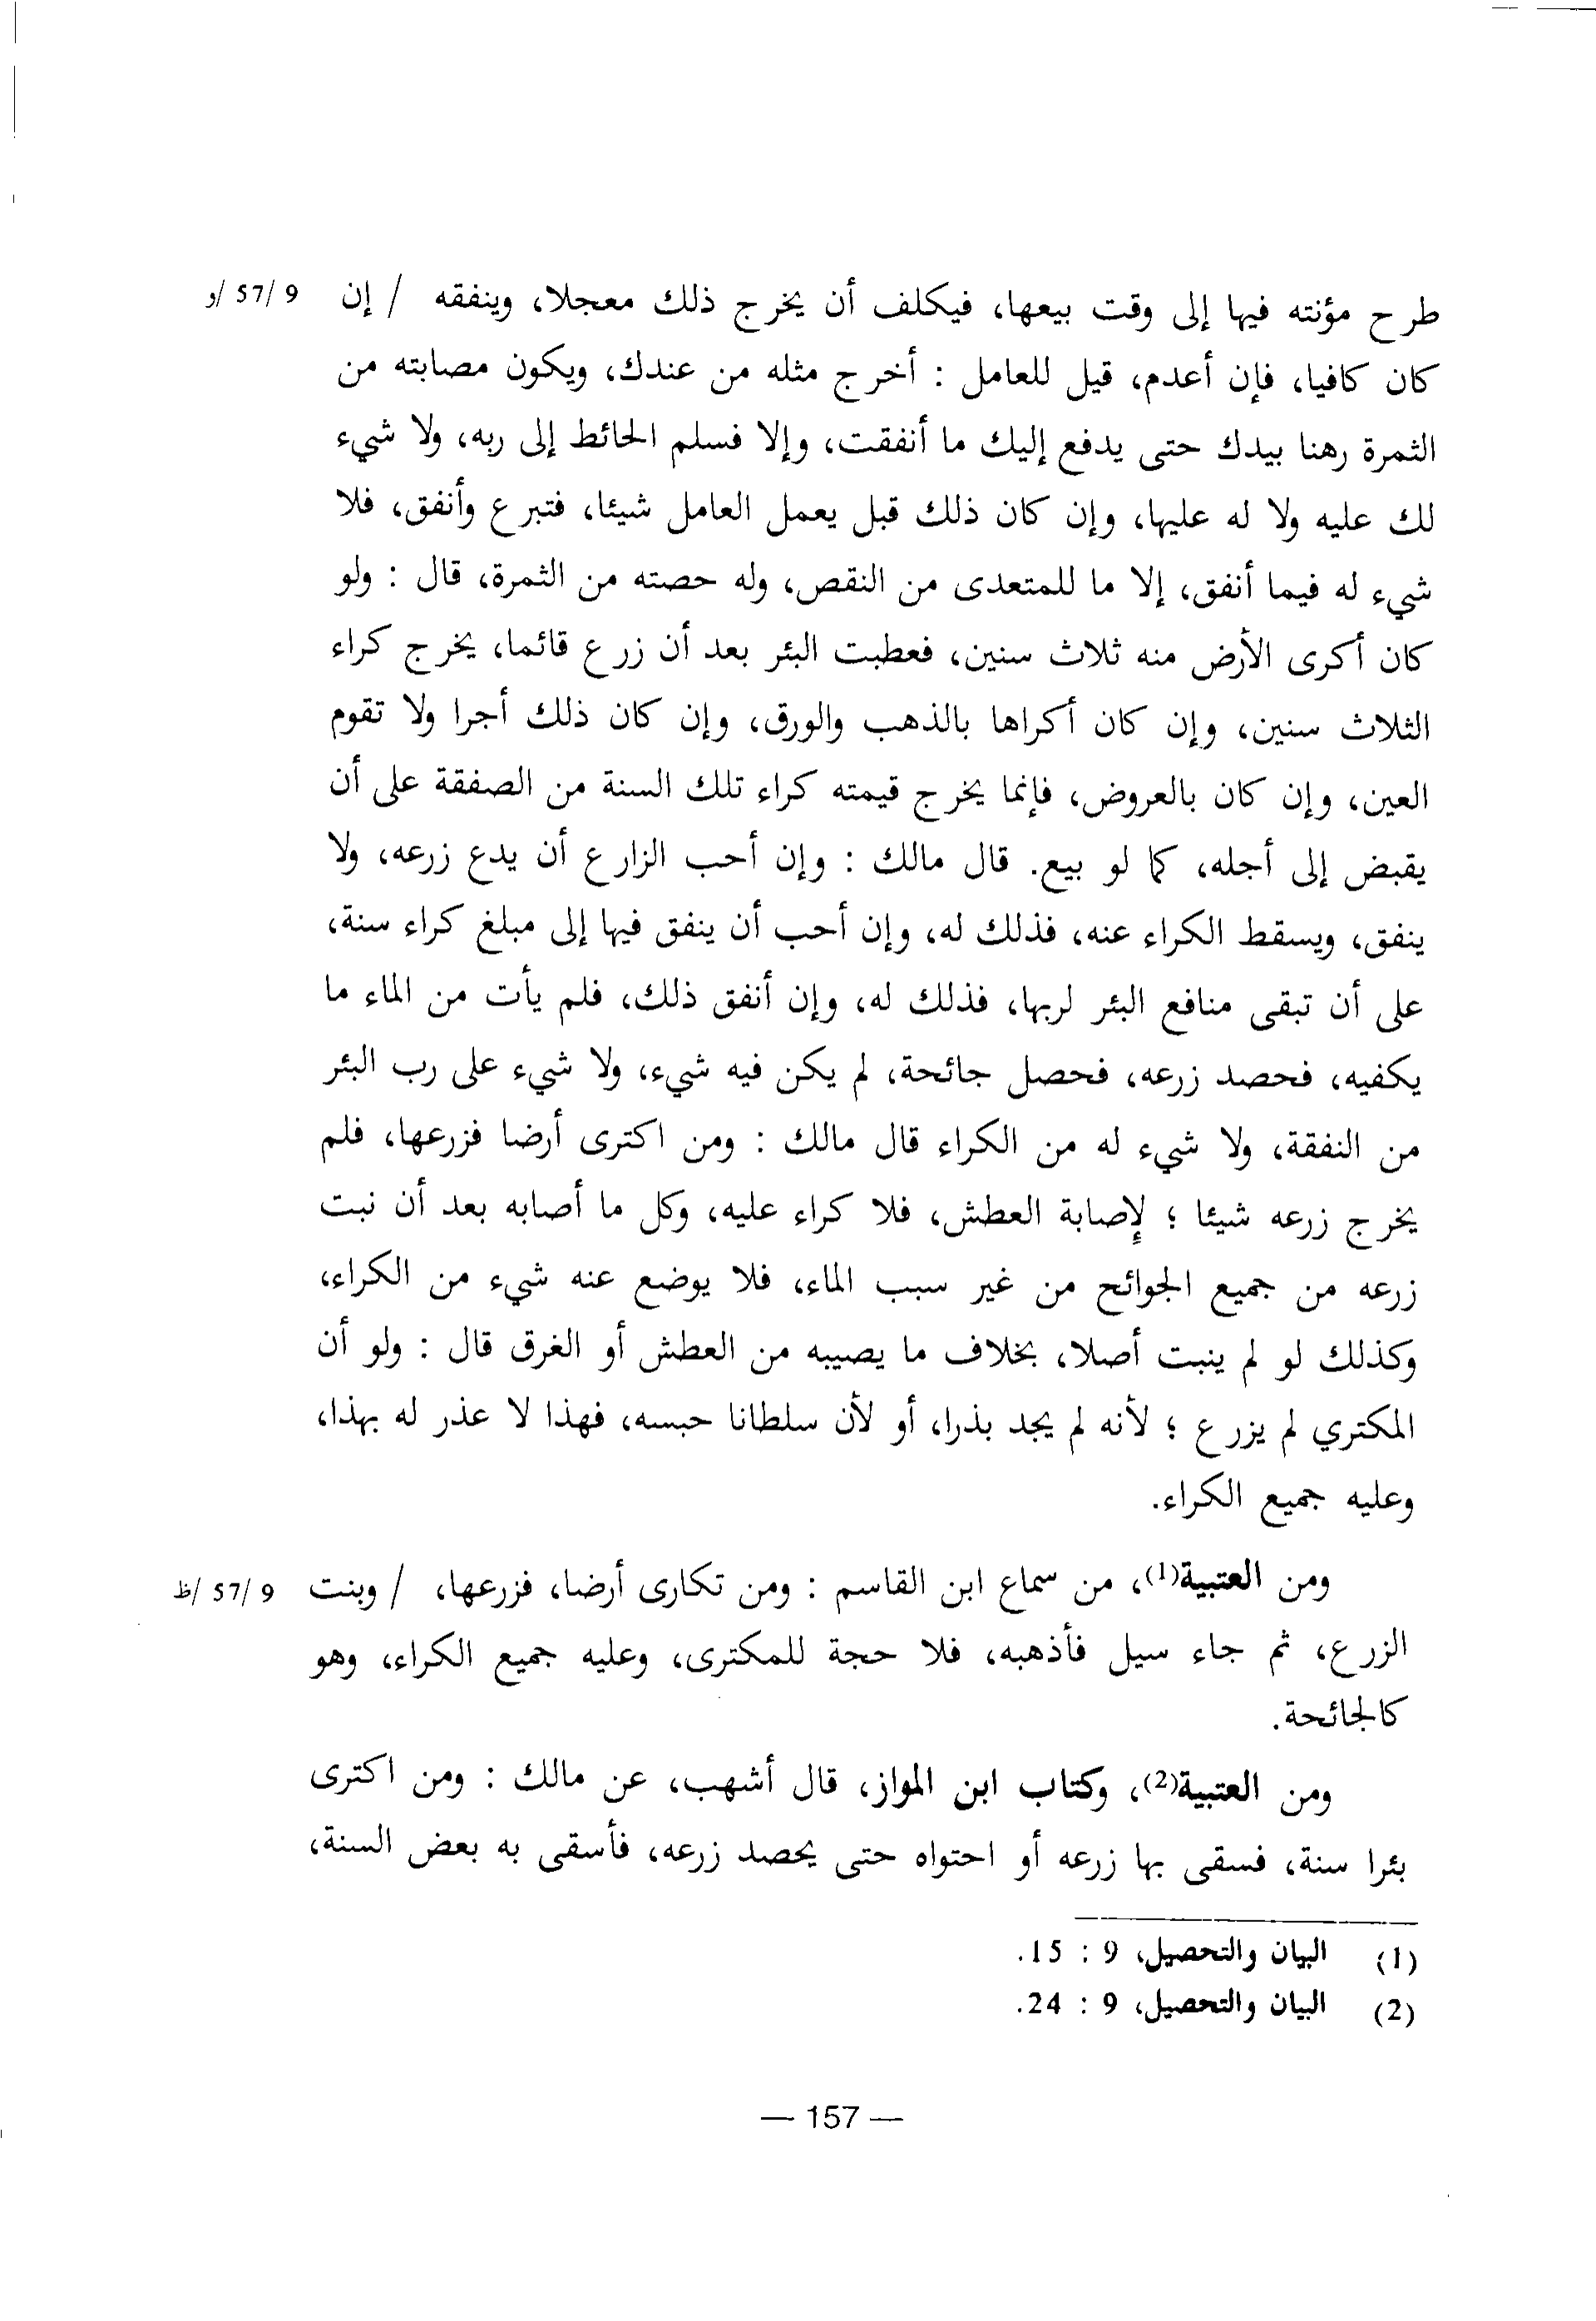 طرح مؤنته فيها إلى وقت بيعها، فيكلف أن يخرج ذلك معجلا، وينفقه / إن 9 /57 /و
كان كافيا، فإن أعدم، قيل للعامل : أخرج مثله من عندك، ويكون مصابته من
الثمرة رهنا بيدك حتى يدفع إليك ما أنفقت، وإلا فسلم الحائط إلى ربه، ولا شيء
لك عليه ولا له عليها، وإن كان ذلك قبل يعمل العامل شيئا، فتبرع وأنفق، فلا
شيء له فيما أنفق، إلا ما للمتعدى من النقص، وله حصته من الثمرة، قال : ولو
كان أكرى الأرض منه ثلاث سنين، فعطبت البئر بعد أن زرع قائما، يخرج كراء
الثلاث سنين، وإن كان أكراها بالذهب والورق، وإن كان ذلك أجرا ولا تقوم
العين، وإن كان بالعروض، فإنما يخرج قيمته كراء تلك السنة من الصفقة على أن
يقبض إلى أجله، كما لو بيع. قال مالك : وإن أحب الزارع أن يدع زرعه، ولا
ينفق، ويسقط الكراء عنه، فذلك له، وإن أحب أن ينفق فيها إلى مبلغ كراء سنة،
على أن تبقى منافع البئر لربها، فذلك له، وإن أنفق ذلك، فلم يأت من الماء ما
يكفيه، فحصد زرعه، فحصل جائحة، لم يكن فيه شيء، ولا شيء على رب البئر
من النفقة، ولا شيء له من الكراء قال مالك : ومن اكترى أرضا فزرعها، فلم
يخرج زرعه شيئا ؛ لإصابة العطش، فلا كراء عليه، وكل ما أصابه بعد أن نبت
زرعه من جميع الجوائح من غير سبب الماء، فلا يوضع عنه شيء من الكراء،
وكذلك لو لم ينبت أصلا، بخلاف ما يصيبه من العطش أو الغرق قال : ولو أن
المكتري لم يزرع ؛ لأنه لم يجد بذرا، أو لأن سلطانا حبسه، فهذا لا عذر له بهذا،
وعليه جميع الكراء.
ومن العتبية(1)، من سماع ابن القاسم : ومن تكارى أرضا، فزرعها، / وبنت 9 /57 /ظ
الزرع، ثم جاء سيل فأذهبه، فلا حجة للمكترى، وعليه جميع الكراء، وهو
كالجائحة.
ومن العتبية(2)، وكتاب ابن المواز، قال أشهب، عن مالك : ومن اكترى
بئرا سنة، فسقى بها زرعه أو احتواه حتى يحصد زرعه، فأسقى به بعض السنة،
(1) البيان والتحصيل، 9 : 15.
(2) البيان والتحصيل، 9 : 24.
— 157 —